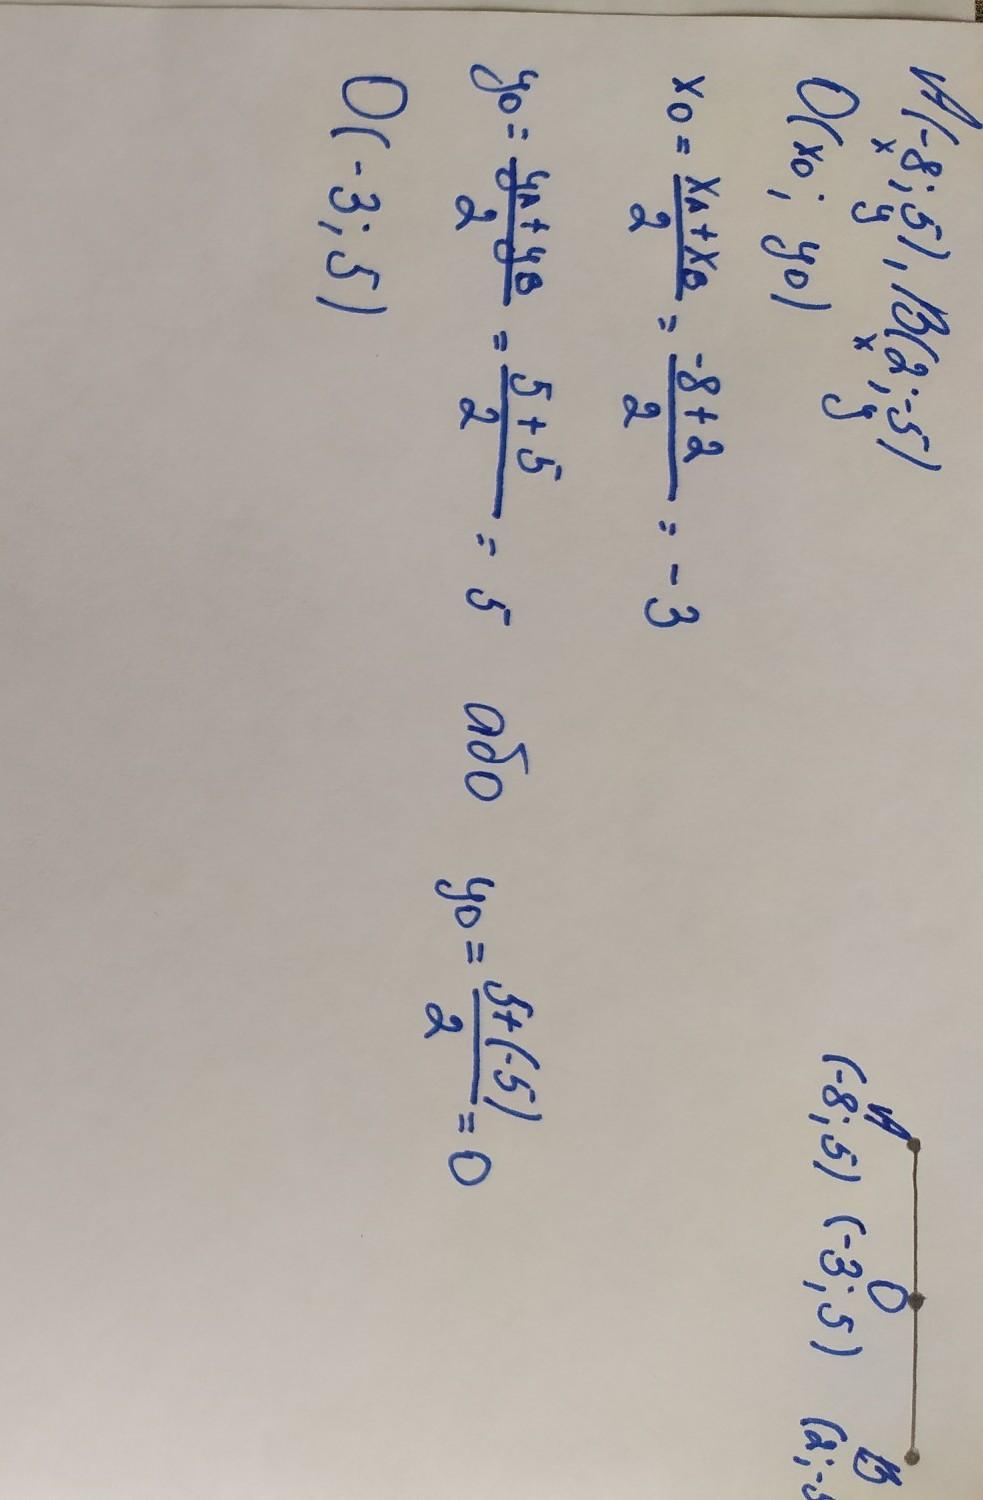 A(-8; 5), B(2; -5)
x y x y
O(x0; y0)
x0 = xA + xB / 2 = -8 + 2 / 2 = -3
y0 = yA + yB / 2 = 5 + 5 / 2 = 5 або y0 = 5 + (-5) / 2 = 0
O(-3; 5)
A O B
(-8; 5) (-3; 5) (2; -5